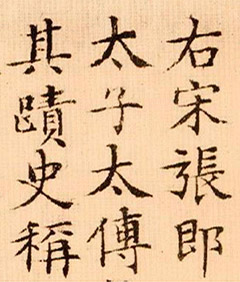 右宋張郎
太子太傳
其蹟史稱